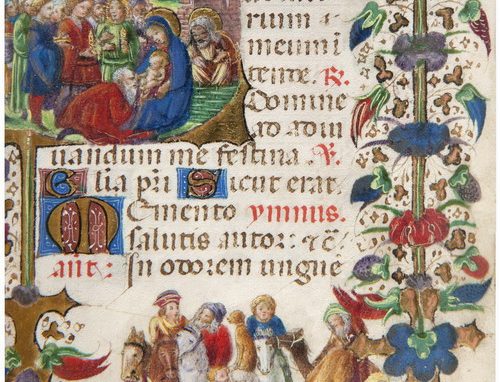 rium :
meum i
tende. R.
Domine
ad adiu
uandum me festina. V.
Glia p̄ri Sicut erat.
Memento ymnus.
salutis autor: ⁊ c̄.
ant: In odorem ungue